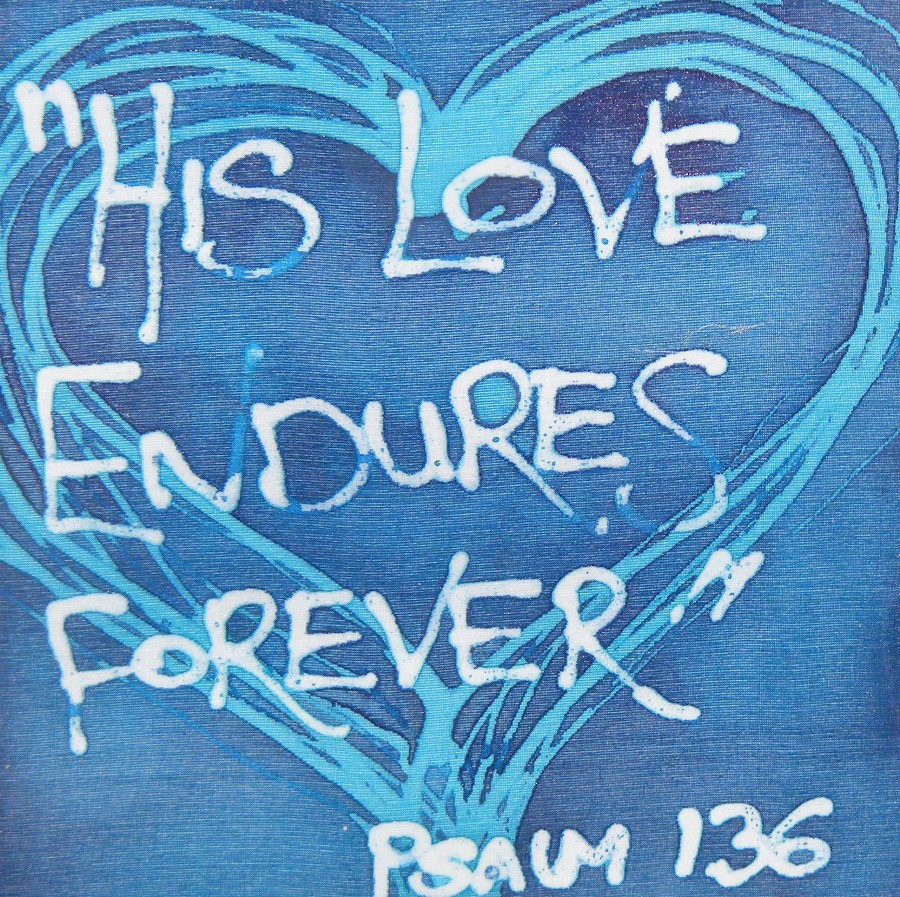 "HIS LOVE
ENDURES
FOREVER."
PSALM 136